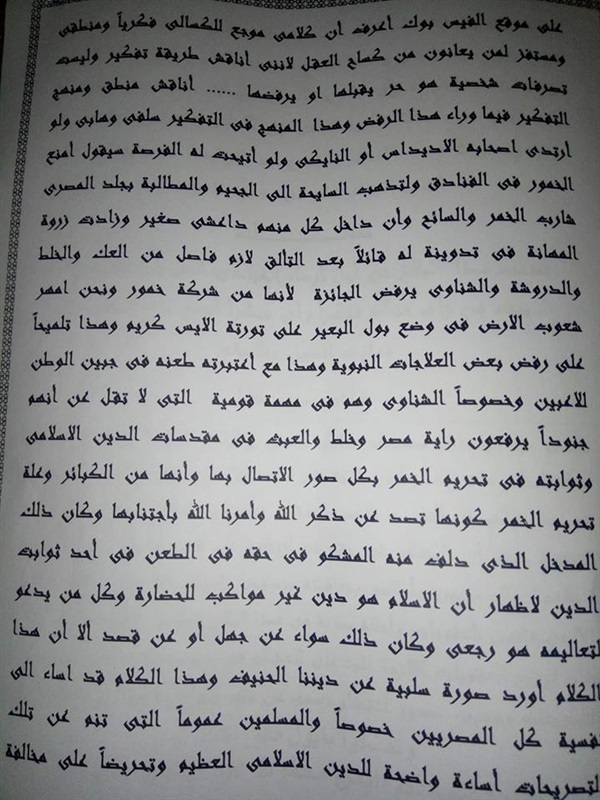 على موقع الفيس بوك أعرف أن كلامى موجع للكسالى فكرياً ومنطقى
ومستفز لمن يعانون من كساح العقل لاننى أناقش طريقة تفكير وليست
تصرفات شخصية هو حر يقبلها او يرفضها ...... أناقش منطق ومنهج
التفكير فيما وراء هذا الرفض وهذا المنهج فى التفكير سلفى وهابى ولو
أرتدى اصحابه الاديداس أو النايكى ولو أتيحت له الفرصة سيقول أمنع
الخمور فى الفنادق ولتذهب السايحة الى الجحيم والمطالبة بجلد المصرى
شارب الخمر والسائح وأن داخل كل منهم داعشى صغير وزادت زروة
المهانة فى تدوينة له قائلاً بعد التألق لازم فاصل من العك والخلط
والدروشة والشناوى يرفض الجائزة لأنها من شركة خمور ونحن امهر
شعوب الارض فى وضع بول البعير على تورتة الايس كريم وهذا تلميحاً
على رفض بعض العلاجات النبوية وهذا مع أعتبرته طعنه فى جبين الوطن
للاعبين وخصوصاً الشناوى وهو فى مهمة قومية التى لا تقل عن أنهم
جنوداً يرفعون راية مصر وخلط والعبث فى مقدسات الدين الاسلامى
وثوابته فى تحريم الخمر بكل صور الاتصال بها وأنها من الكبائر وعلة
تحريم الخمر كونها تصد عن ذكر الله وأمرنا الله بأجتنابها وكان ذلك
المدخل الذى دلف منه المشكو فى حقه فى الطعن فى أحد ثوابت
الدين لاظهار أن الاسلام هو دين غير مواكب للحضارة وكل من يدعو
لتعاليمه هو رجعى وكان ذلك سواء عن جهل أو عن قصد ألا أن هذا
الكلام أورد صورة سلبية عن ديننا الحنيف وهذا الكلام قد اساء الى
نفسية كل المصريين خصوصاً والمسلمين عموماً التى تنم عن تلك
لتصريحات أساءة واضحة للدين الاسلامى العظيم وتحريضاً على مخالفة